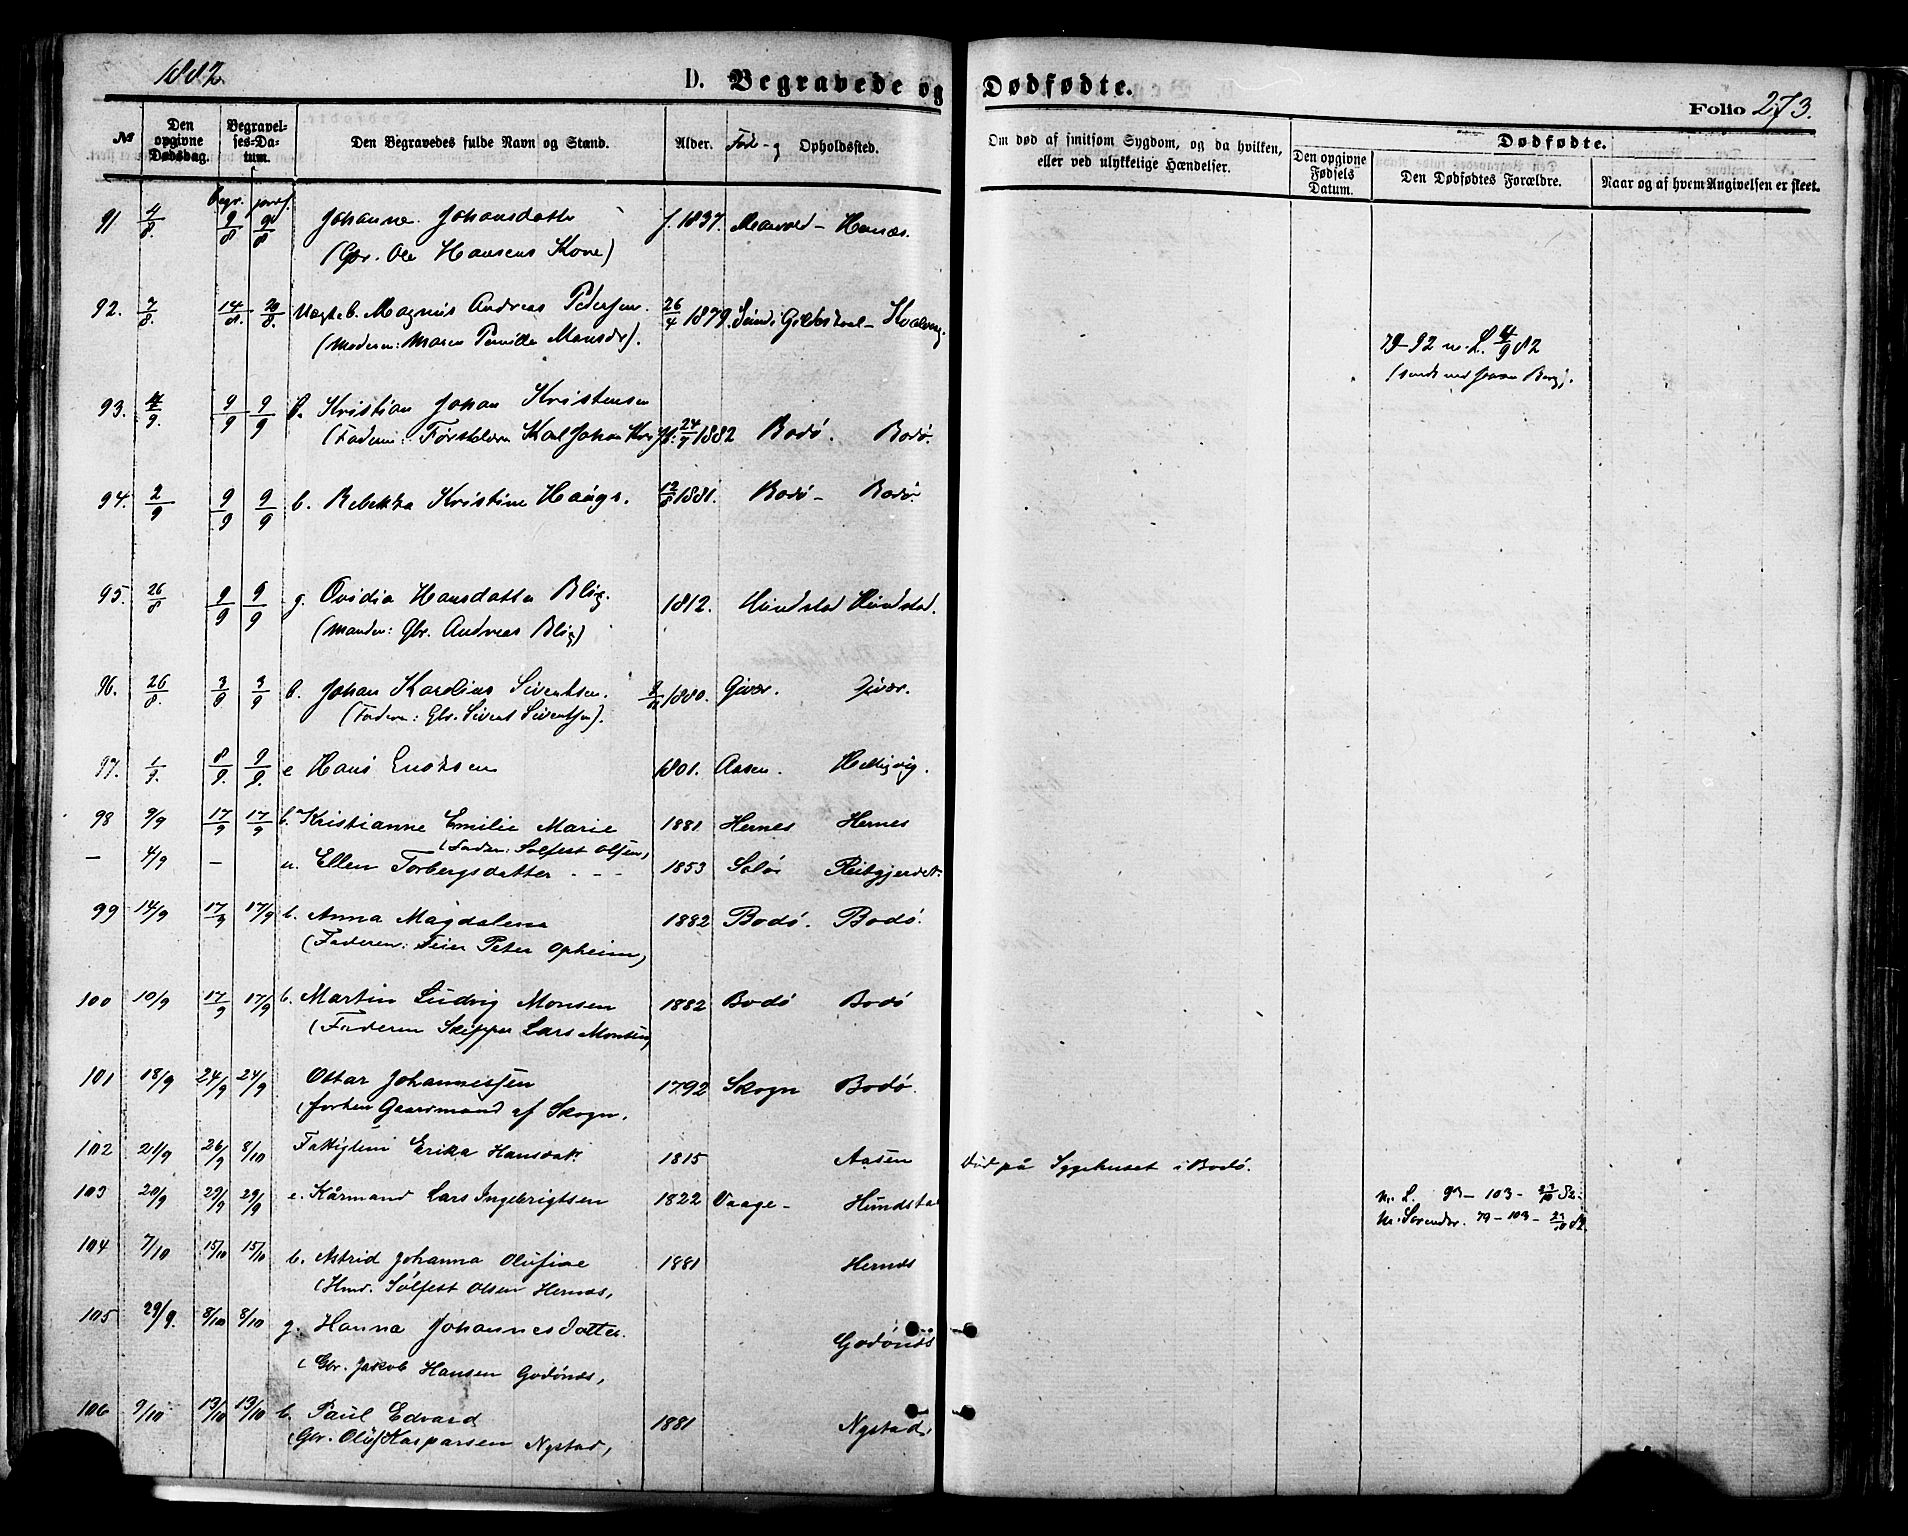 1882.
D. Begravede og Dødfødte.
Folio 273.
No
Den opgivne Dødsdag.
Begravelses-Datum.
Den Begravedes fulde Navn og Stand.
Alder.
Føde- og Opholdssted.
Om død af smitsom Sygdom, og da hvilken, eller ved ulykkelige Hændelser.
Dødfødte.
Den opgivne Fødsels Datum.
Den Dødfødtes Forældre.
Naar og af hvem Angivelsen er skeet.
begr. jordf.
91 4/8. 9/8 9/8 Johanne Johansdatter f. 1837.
(Gbr. Ole Hansens Kone)
92. 7/8. 14/8. 20/8. Magnus Andreas Pedersen. 26/4 1879. Gildeskaal-
(Moderen: Maren Pernille Monsdr).
79-92 m. L. 4/9 82
93. 4/9. 9/9 9/9 b. Kristian Johan Kristensen
(Faderen: Karl Johan 1882 Bodø. Bodø.
94. 2/9 9/9 9/9 b. Rebekka Kristine Haugs. 12/8 1881. Bodø- Bodø
95. 26/8 9/9 9/9 g. Ovidia Hansdatter Blix. 1812. Hundstad Hundstad.
(Manden: Gbr. Andreas Blix)
96. 26/8. 3/9 3/9 b. Johan Karolius Sivertsen. 1880. Givær. Givær.
(Faderen: Gbr. Sivert Sivertsen).
97. 1/9. 8/9. 9/9. e Hans Enoksen 1801. Aasen.
98 9/9 17/9 17/9 b. Kristianne Emilie Marie 1881 Hernes Hernes
(Faderen: Sølfest Olsen,
— 4/9 — u. Ellen Torbergsdatter - - - 1853
99 14/9 17/9 17/9 b. Anna Magdalena 1882 Bodø. Bodø.
(Faderen: Feier Peter Opheim,
100 10/9 17/9 17/9 b. Martin Ludvig Monsen 1882 Bodø Bodø
(Faderen Skipper Lars Monsen,
101 18/9 24/9 24/9 Ottar Johannessen 1792 Skogn Bodø.
(forhen Gaardmand af Skogn.
102 21/9 26/9 8/10 Fattiglem Erika Hansdatr. 1815 Aasen Død på Sygehuset i Bodø.
103 20/9 29/9 29/9 e. Kårmand Lars Ingebrigtsen 1822 Vaage- Hundstad
m. L. 93-103- 23/10 82.
79-103- 23/10 82
104 7/10 15/10 15/10 b. Astrid Johanna Olufine 1881 Hernes
(Hmd. Sølfest Olsen Hernes,
105 29/9. 8/10 8/10 g. Hanna Johannesdatter. Godønes
(Gbr. Jakob Hansen Godønes,
106 9/10 13/10 13/10 b. Paul Edvard 1881 Nystad.
(Gbr. Oluf Kasparsen Nystad,